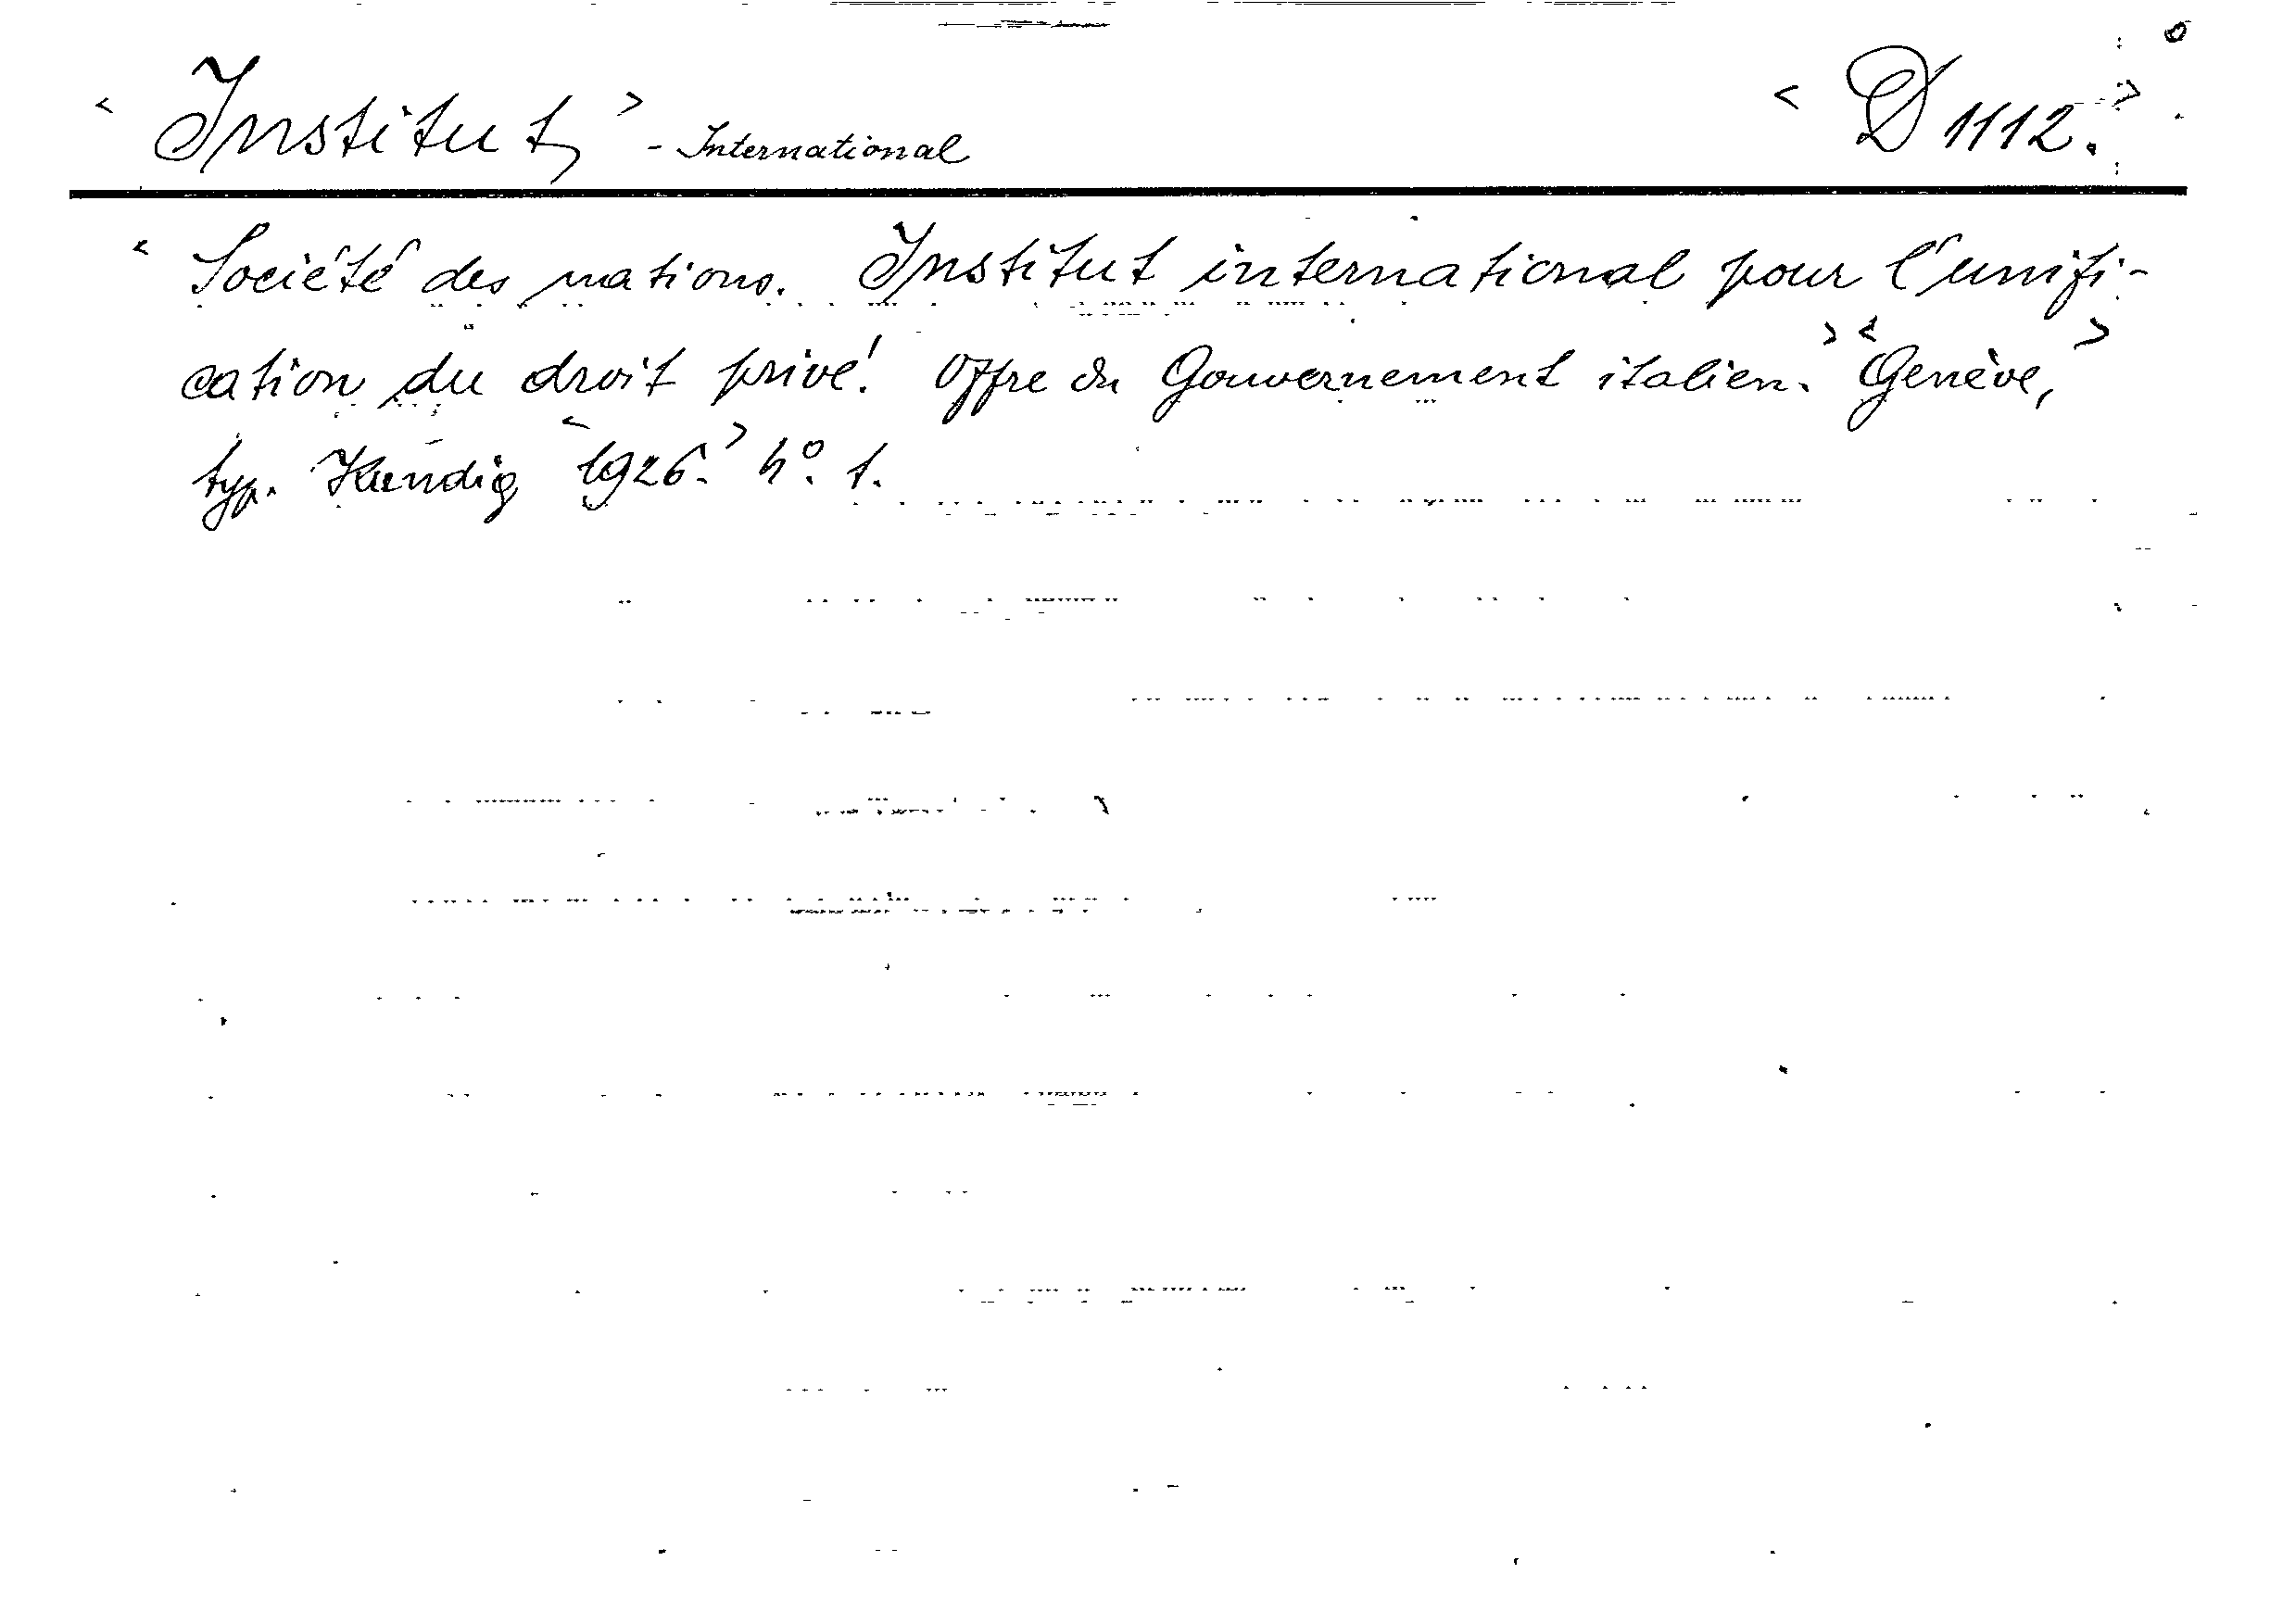 < Institut, > - International < D 1112. >
< Société des nations. Institut international pour l'unifi-
cation du droit privé. Offre du Gouvernement italien. > < Genève, >
typ. Kundig < 1926. > 4°. 1.